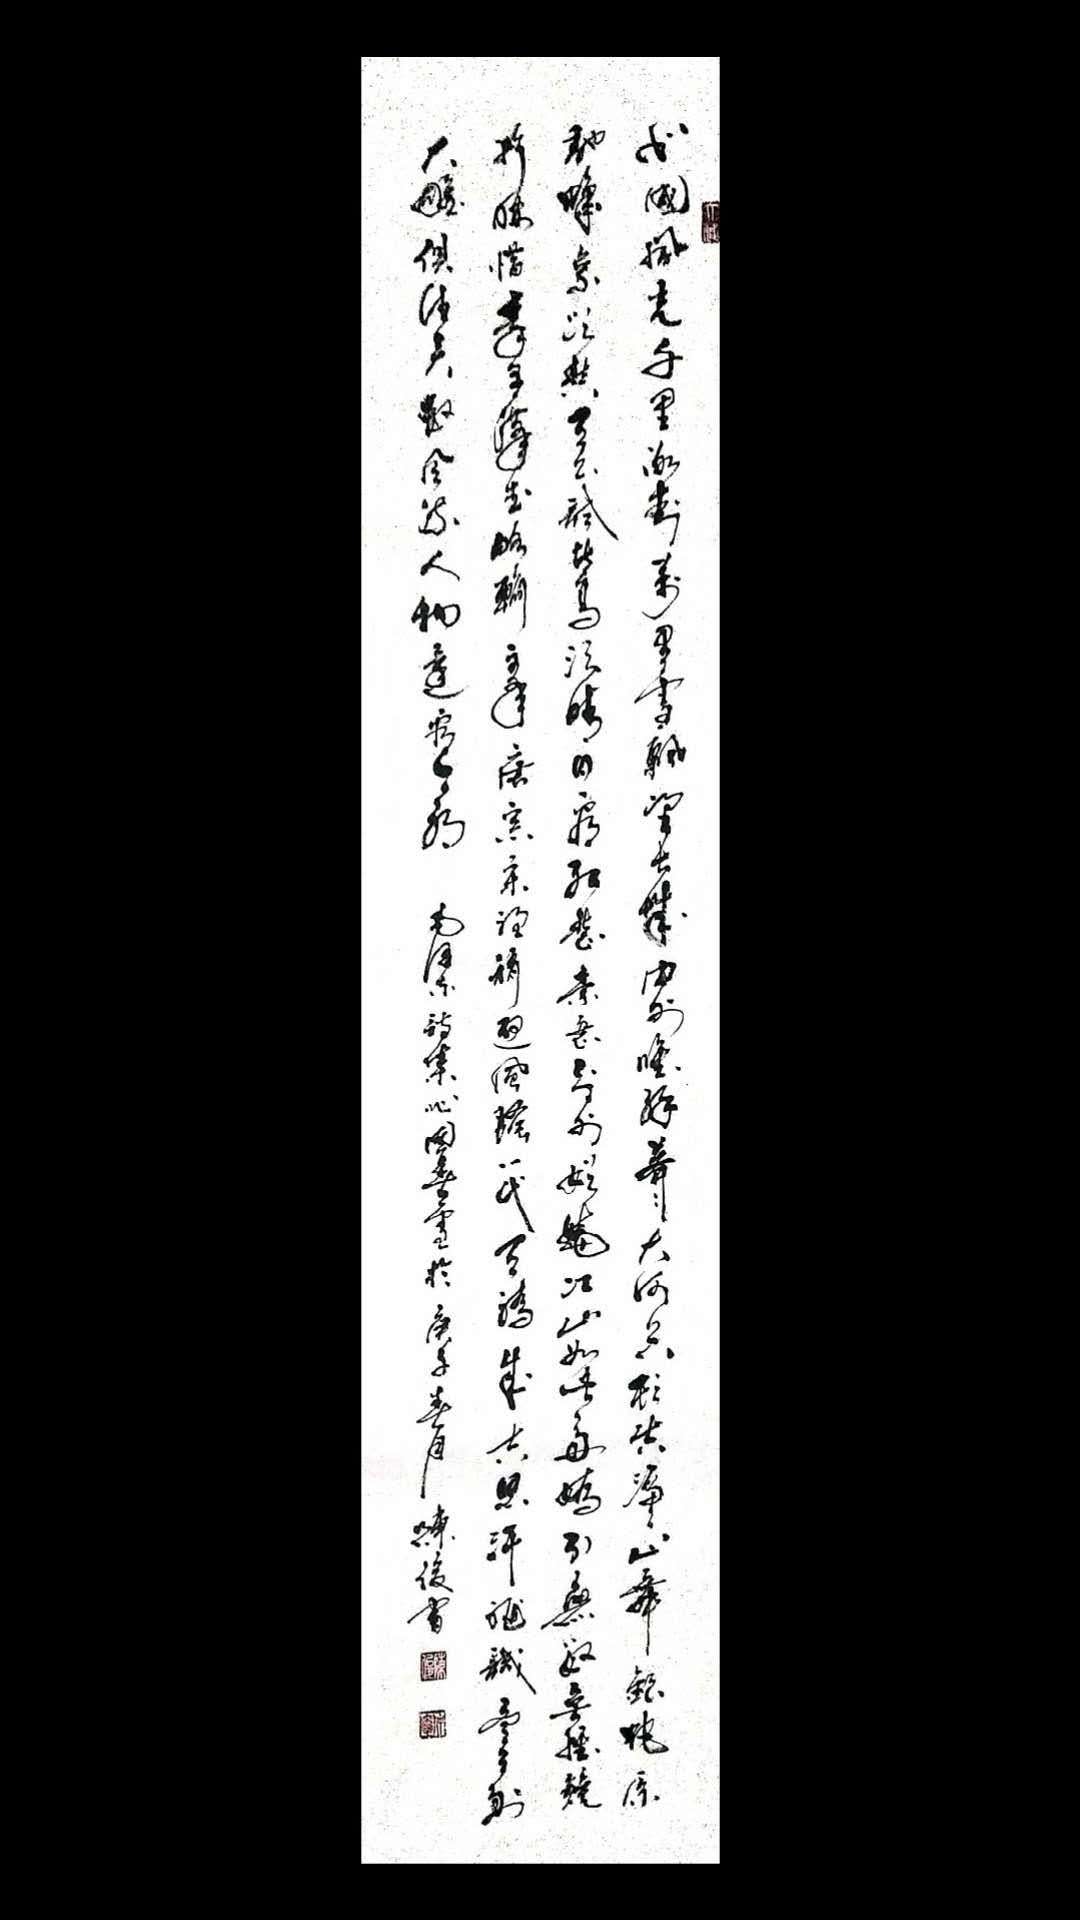 北國風光千里冰封萬里雪飄望長城内外唯餘莽莽大河上下頓失滔滔山舞銀蛇原
馳蠟象欲與天公試比高須晴日看紅裝素裹分外妖嬈江山如此多嬌引無數英雄競
折腰惜秦皇漢武略輸文采唐宗宋祖稍遜風騷一代天驕成吉思汗祗識彎弓射
大雕俱往矣數風流人物還看今朝 毛澤東詩集沁園春雪於庚子春月 俊書